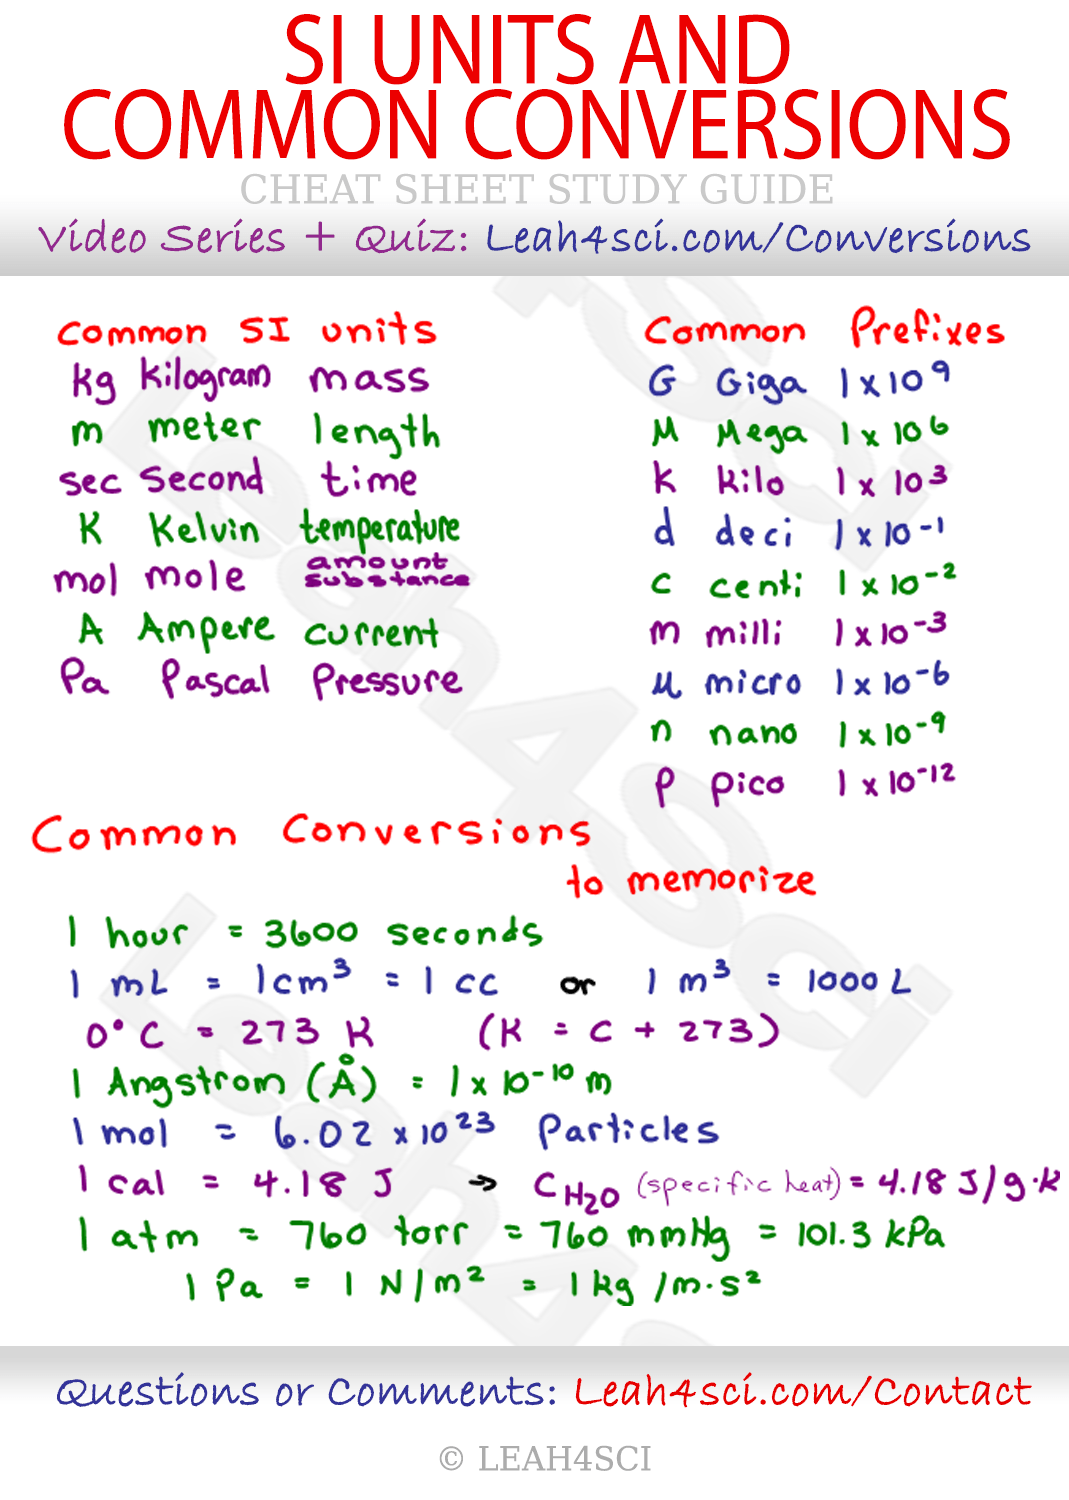 SI UNITS AND
COMMON CONVERSIONS
CHEAT SHEET STUDY GUIDE
Video Series + Quiz: Leah4sci.com/Conversions
Common SI units
kg kilogram mass
m meter length
sec Second time
K Kelvin temperature
mol mole amount substance
A Ampere current
Pa Pascal Pressure
Common Prefixes
G Giga 1 x 10⁹
M Mega 1 x 10⁶
k kilo 1 x 10³
d deci 1 x 10⁻¹
c centi 1 x 10⁻²
m milli 1 x 10⁻³
μ micro 1 x 10⁻⁶
n nano 1 x 10⁻⁹
p pico 1 x 10⁻¹²
Common Conversions
to memorize
1 hour = 3600 seconds
1 mL = 1cm³ = 1 cc or 1 m³ = 1000 L
0° C = 273 K (K = C + 273)
1 Angstrom (Å) = 1 x 10⁻¹⁰ m
1 mol = 6.02 x 10²³ Particles
1 cal = 4.18 J → C H₂O (specific heat) = 4.18 J/g·K
1 atm = 760 torr = 760 mmHg = 101.3 kPa
1 Pa = 1 N/m² = 1 kg /m·s²
Questions or Comments: Leah4sci.com/Contact
© LEAH4SCI
Leah4sci
Leah4sci